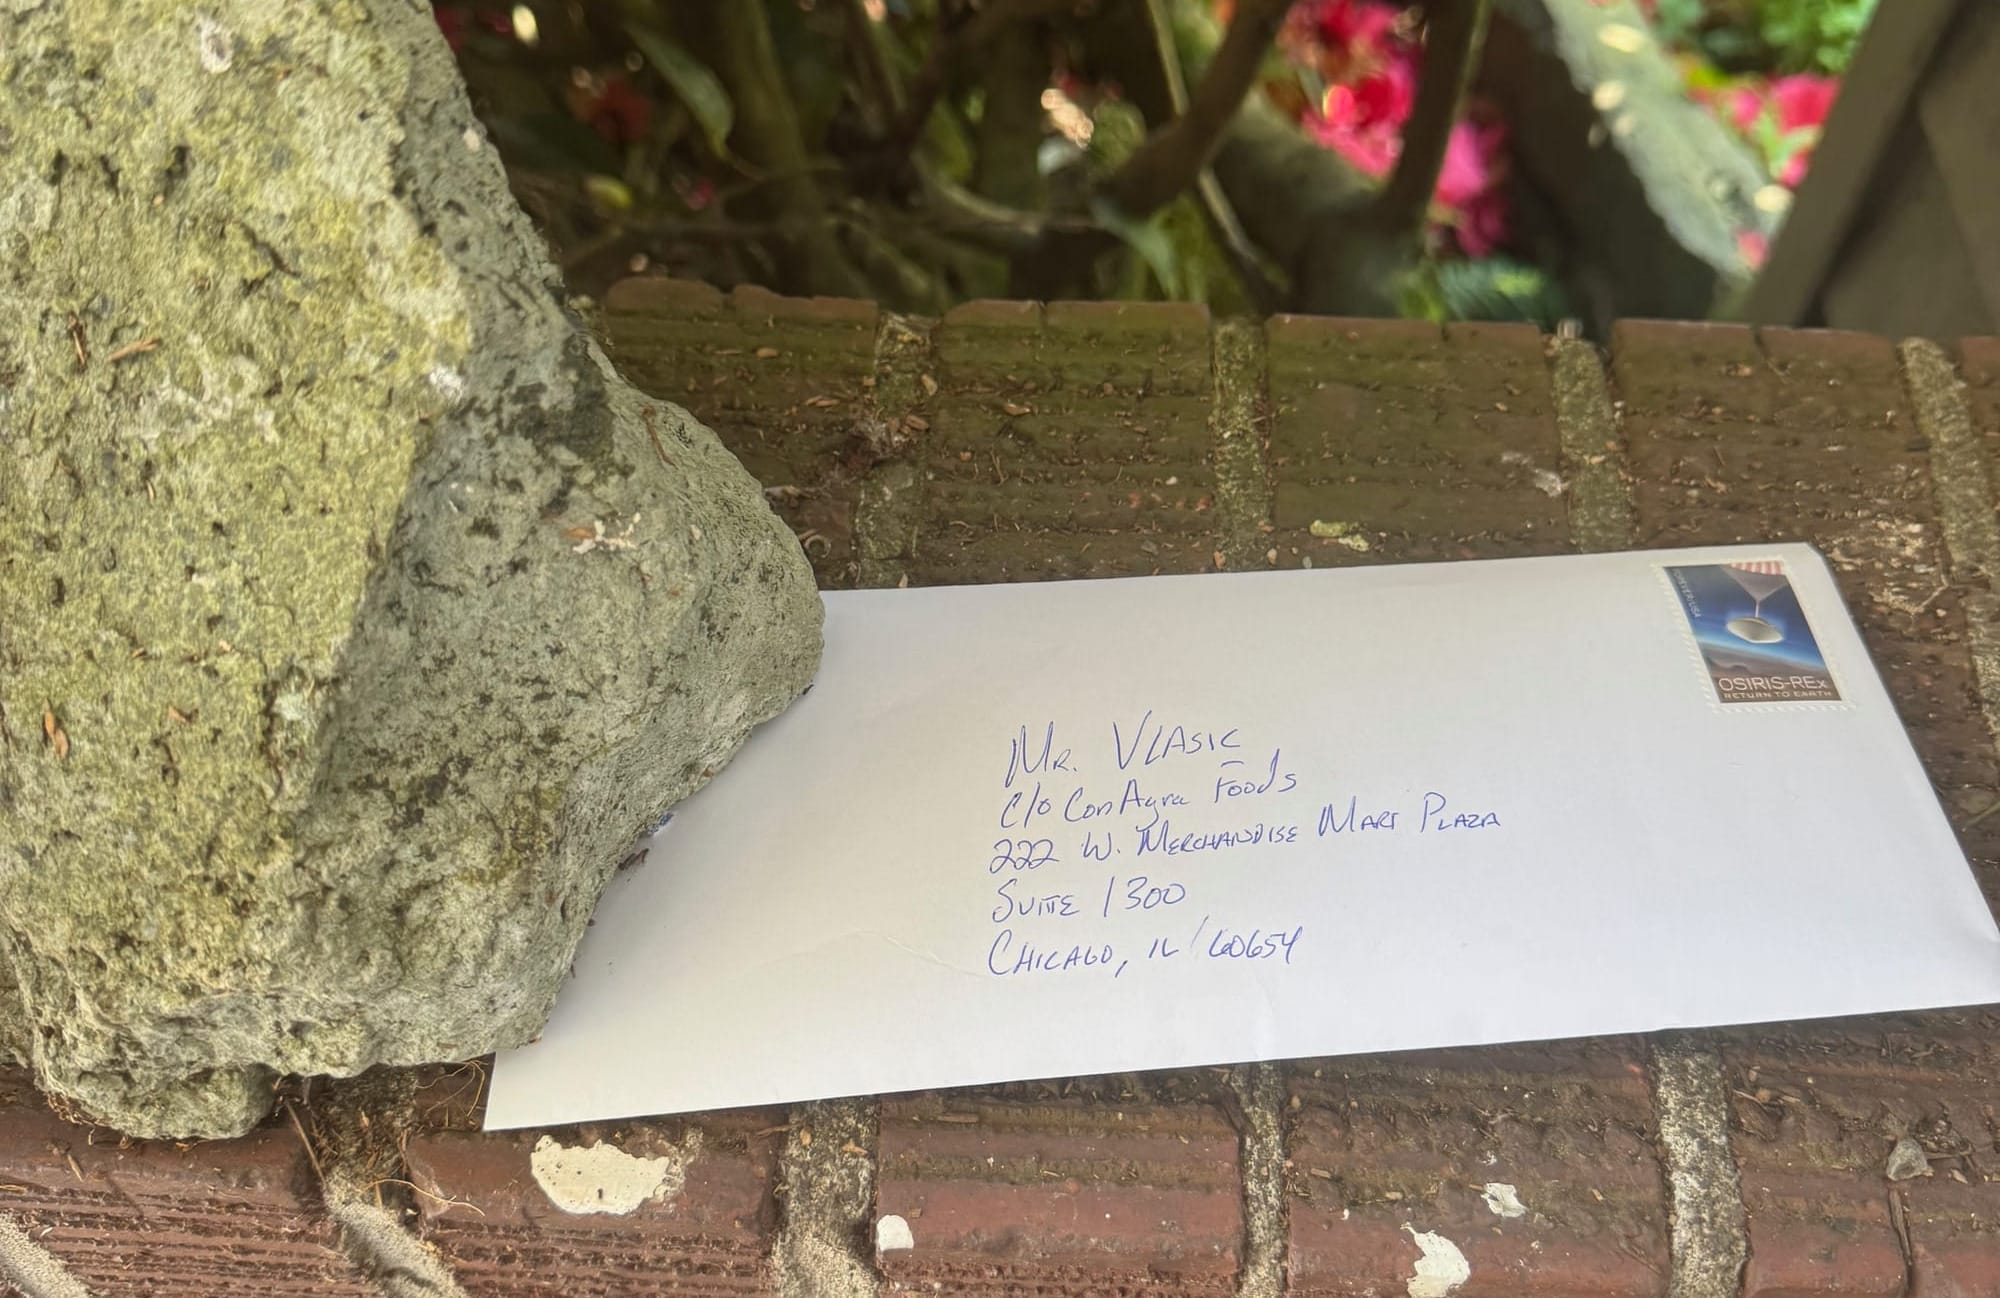 FOREVER/USA
OSIRIS-REx
RETURN TO EARTH
Mr. VLASIC
c/o ConAgra Foods
222 W. MERCHANDISE MART PLAZA
SUITE 1300
CHICAGO, IL 60654